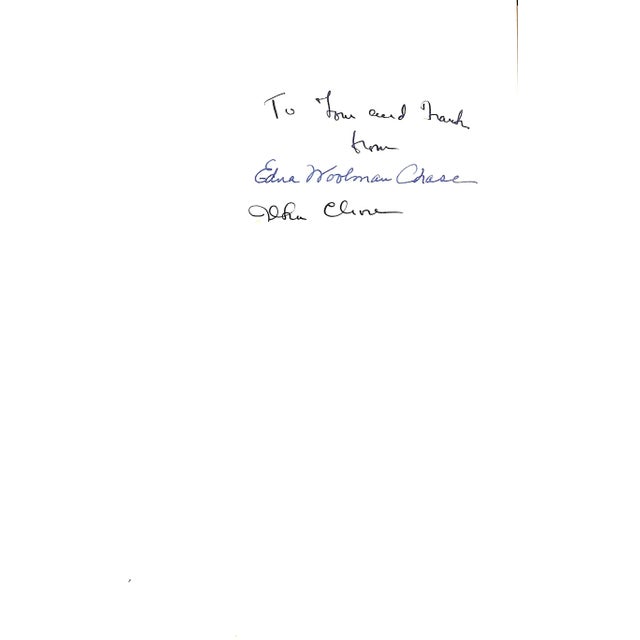 To Tom and Frank
from
Edna Woolman Chase
Ilka Chase